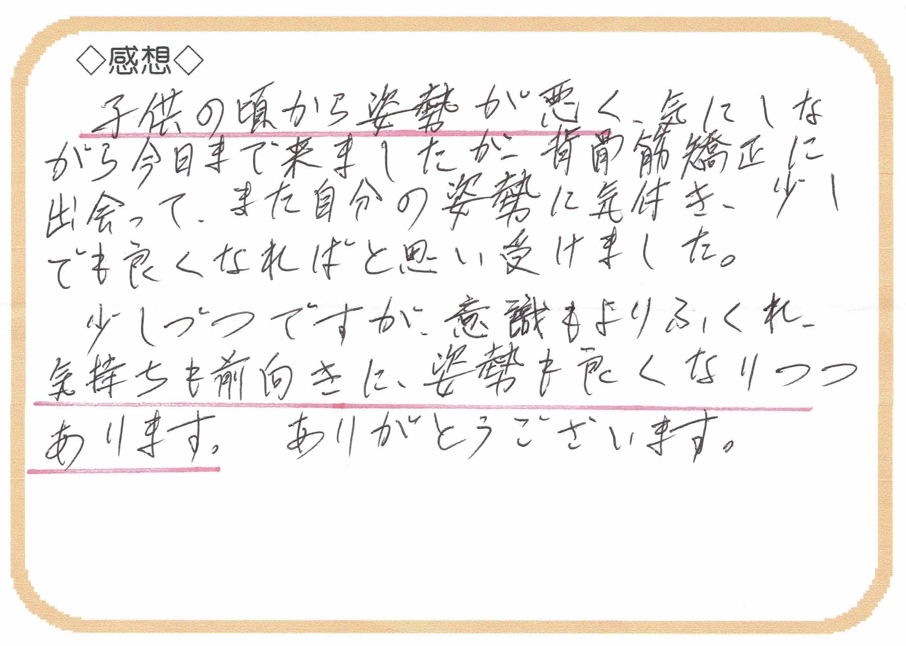 ◇感想◇
子供の頃から姿勢が悪く、気にしな
がら今日まで来ましたが、背骨筋矯正に
出会って、また自分の姿勢に気付き、少し
でも良くなればと思い受けました。
少しづつですが、意識もよりふくれ、
気持ちも前向きに、姿勢も良くなりつつ
あります。 ありがとうございます。